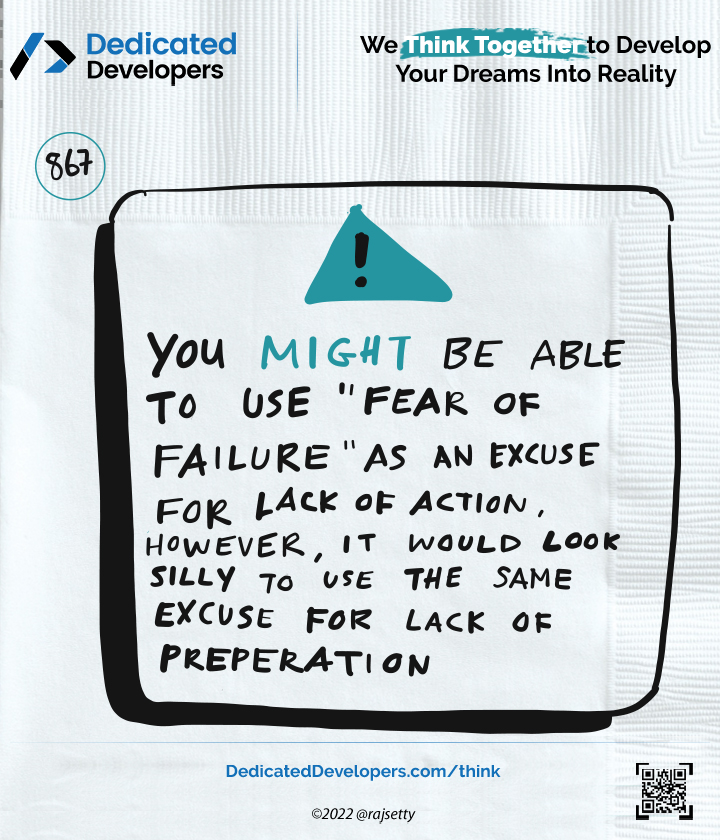 Dedicated
Developers
We Think Together to Develop
Your Dreams Into Reality
867
!
YOU MIGHT BE ABLE
TO USE "FEAR OF
FAILURE" AS AN EXCUSE
FOR LACK OF ACTION,
HOWEVER, IT WOULD LOOK
SILLY TO USE THE SAME
EXCUSE FOR LACK OF
PREPERATION
DedicatedDevelopers.com/think
©2022 @rajsetty